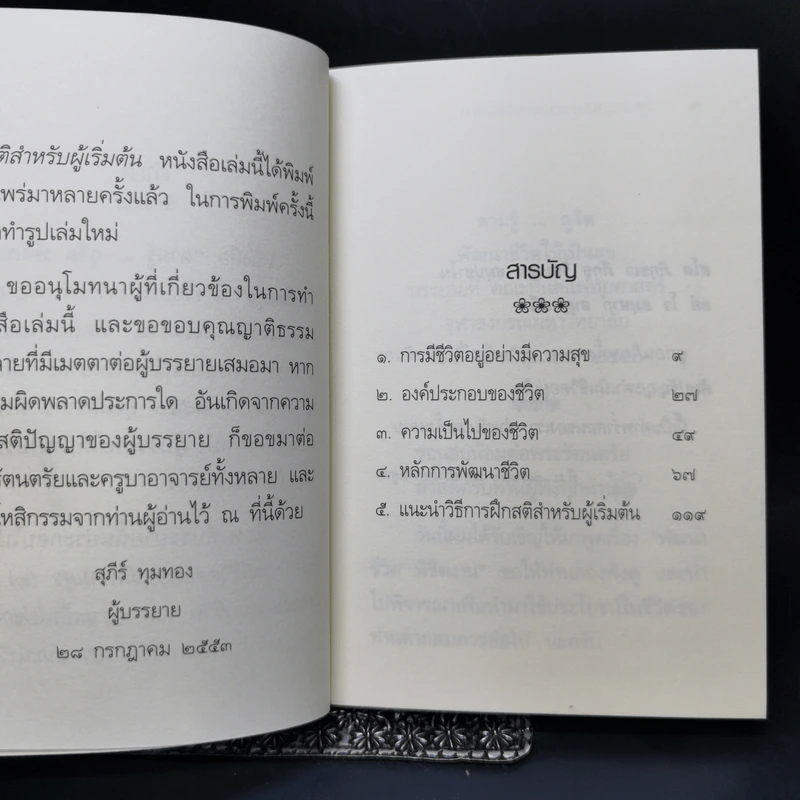 ติสำหรับผู้เริ่มต้น หนังสือเล่มนี้ได้พิมพ์
แพร่มาหลายครั้งแล้ว ในการพิมพ์ครั้งนี้
ทำรูปเล่มใหม่
ขออนุโมทนาผู้ที่เกี่ยวข้องในการทำ
สือเล่มนี้ และขอขอบคุณญาติธรรม
ลายที่มีเมตตาต่อผู้บรรยายเสมอมา หาก
มผิดพลาดประการใด อันเกิดจากความ
สติปัญญาของผู้บรรยาย ก็ขอขมาต่อ
รัตนตรัยและครูบาอาจารย์ทั้งหลาย และ
โหสิกรรมจากท่านผู้อ่านไว้ ณ ที่นี้ด้วย
สุภีร์ ทุมทอง
ผู้บรรยาย
๒๘ กรกฎาคม ๒๕๕๓
สารบัญ
๑. การมีชีวิตอยู่อย่างมีความสุข ๙
๒. องค์ประกอบของชีวิต ๒๗
๓. ความเป็นไปของชีวิต ๔๙
๔. หลักการพัฒนาชีวิต ๖๗
๕. แนะนำวิธีการฝึกสติสำหรับผู้เริ่มต้น ๑๑๙